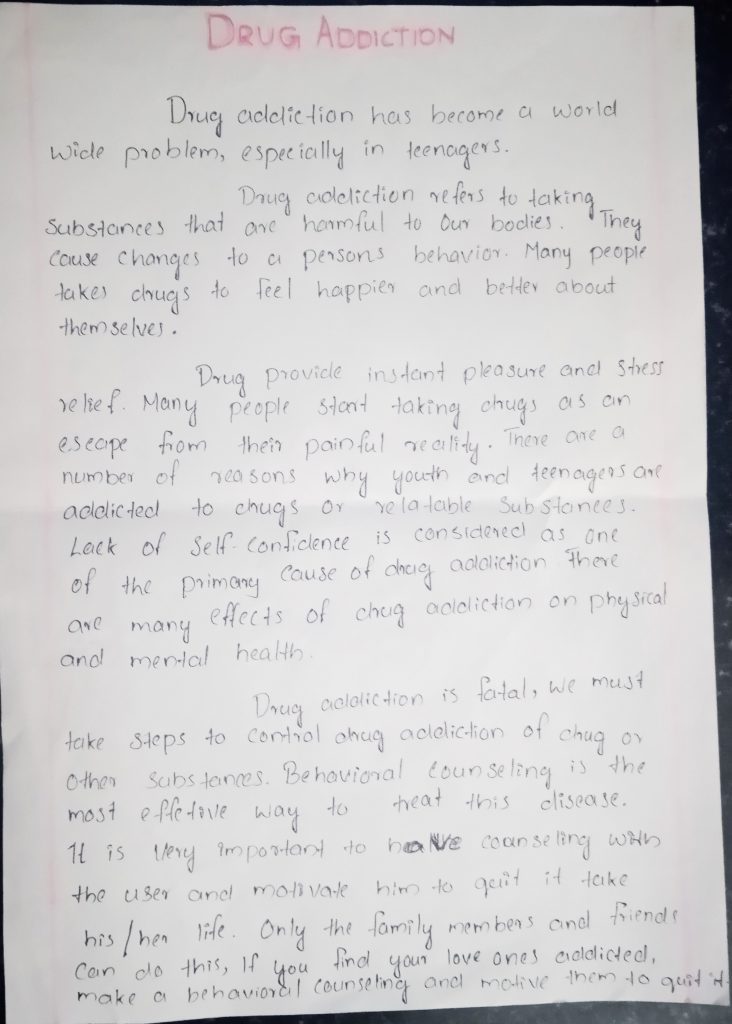 DRUG ADDICTION
Drug addiction has become a world
wide problem, especially in teenagers.
Drug addiction refers to taking
substances that are harmful to our bodies. They
cause changes to a persons behavior. Many people
takes drugs to feel happier and better about
themselves.
Drug provide instant pleasure and stress
relief. Many people start taking drugs as an
escape from their painful reality. There are a
number of reasons why youth and teenagers are
addicted to drugs or relatable substances.
Lack of self-confidence is considered as one
of the primary cause of drug addiction There
are many effects of drug addiction on physical
and mental health.
Drug addiction is fatal, we must
take steps to control drug addiction of drug or
other substances. Behavioral counseling is the
most effetive way to treat this disease.
It is very important to have counseling with
the user and motivate him to quit it take
his/her life. Only the family members and friends
can do this, If you find your love ones addicted,
make a behavioral counseling and motive them to quit it.